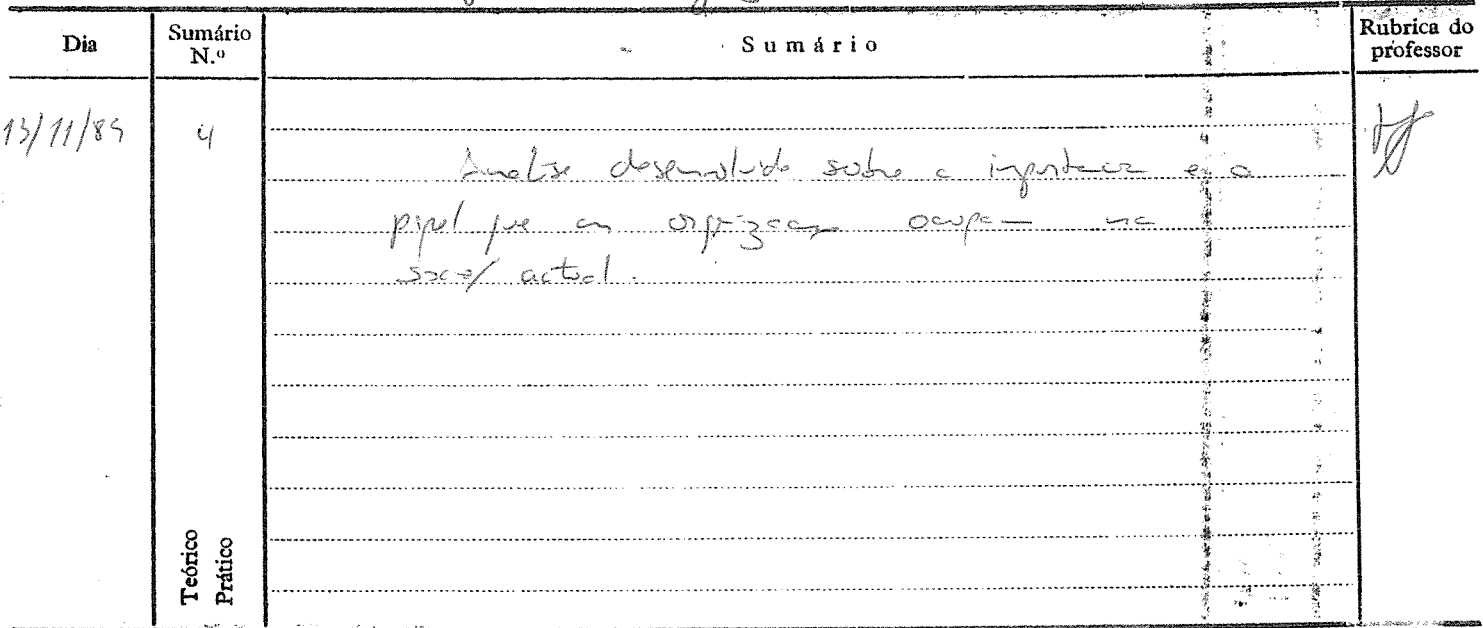 Dia
Sumário N.º
Sumário
Rubrica do professor
13/11/89
4
Analise desenvolvida sobre a importancia e o
papel que as organizações ocupam na
soc/ actual.
Teórico
Prático